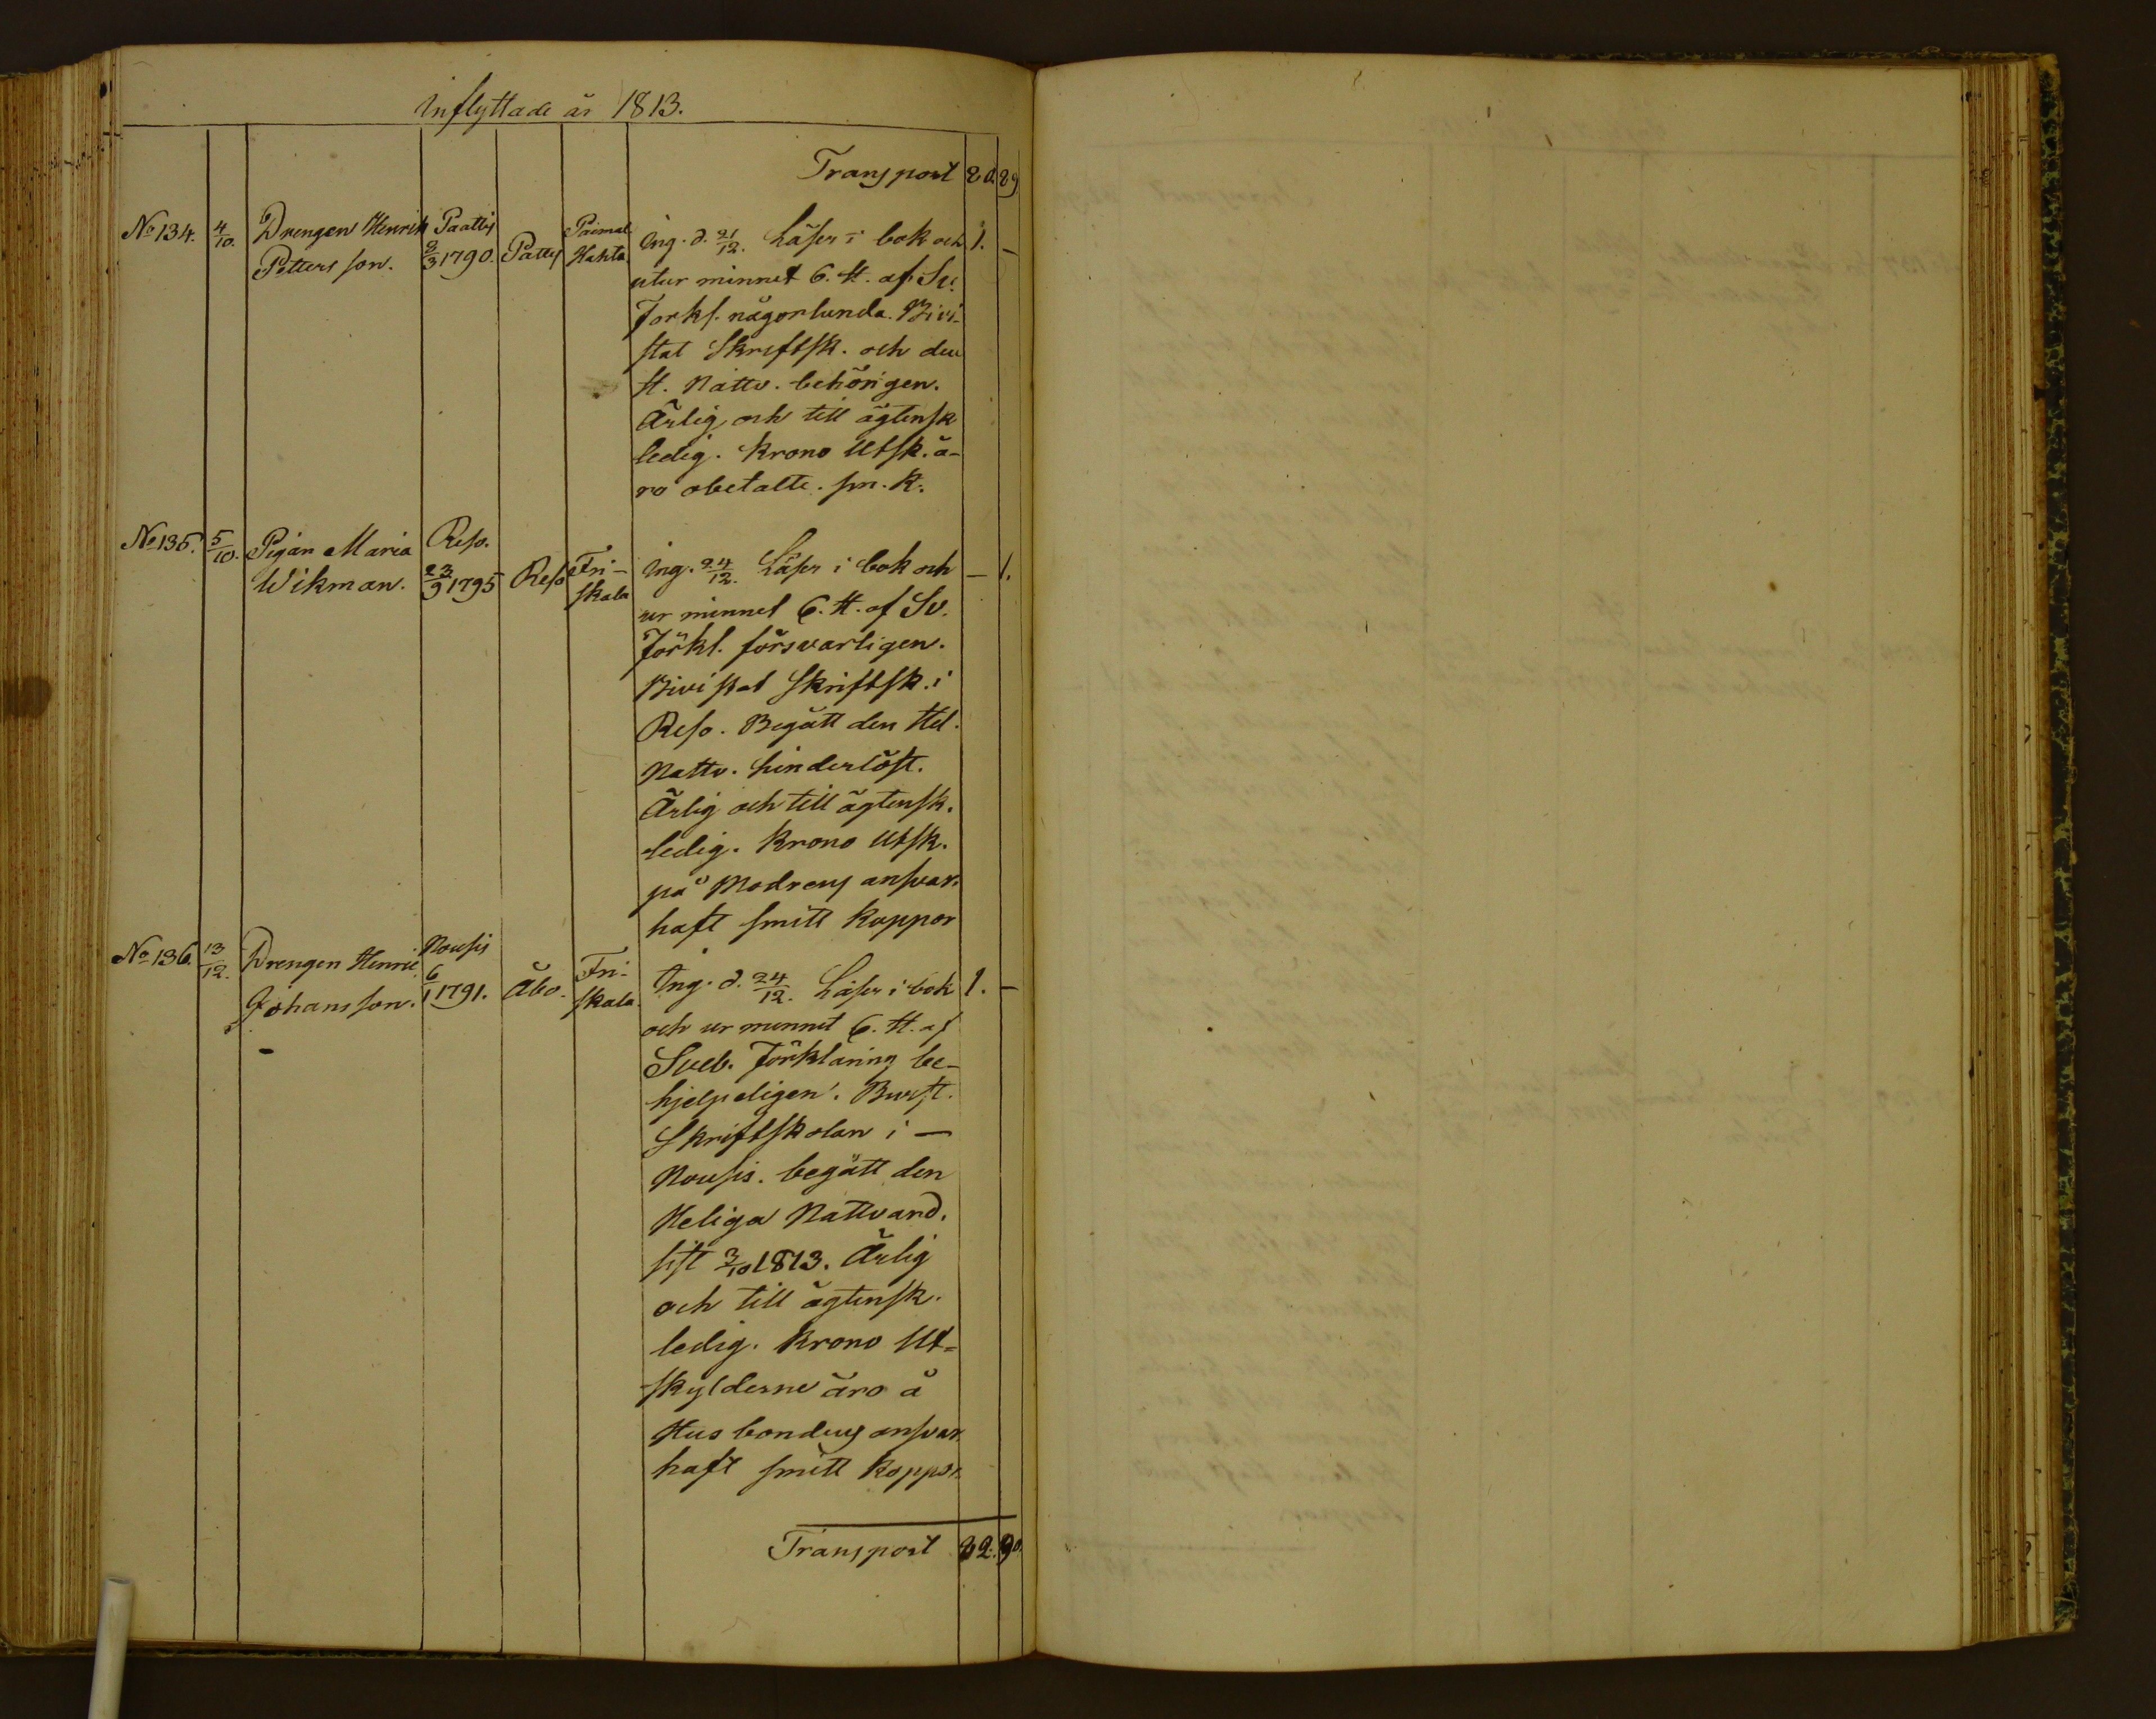 Inflyttade år 1813.
Transport 80. 89
No 134. 4/10. Drengen Henrik Petters son. Paattis 8/3 1790. Pattis Paimal Hahta
Ing. d. 21/12. Läser i bok och 1. —
utur minnet 6. H. af Sv.
Forkl. någorlunda. Bivi-
stat Skriftsk. och den
H. Nattv. behörigen.
Ärlig och till ägtensk
ledig. Krono Utsk. ä-
ro obetalte. sm. K.
No 135. 5/10. Pigan Maria Wikman. Reso. 23/9 1795 Reso Fri-skala
Ing. 24/12. Läser i bok och — 1.
ur minnet 6. H. af Sv.
Förkl. försvarligen.
Bivistat Skriftsk. i
Reso. Begått den Hel.
Nattv. hinderlöst.
Ärlig och till ägtensk.
ledig. Krono Utsk.
på Modrens ansvar.
haft smitt Koppor
No 136. 13/12. Drengen Henric Johansson. Nousis 6/1 1791. Åbo. Fri-skala.
Ing. d. 24/12. Läser i bok 1. —
och ur minnet 6. H. af
Sveb. Förklaring be-
hjelpeligen. Bivist.
Skriftskolan i —
Nousis. begått den
Heliga Nattvard.
sist 3/10 1813. Ärlig
och till ägtensk.
ledig. Krono Ut-
skylderne äro å
Husbondens ansvar.
haft smitt Koppor.
Transport 82. 90.